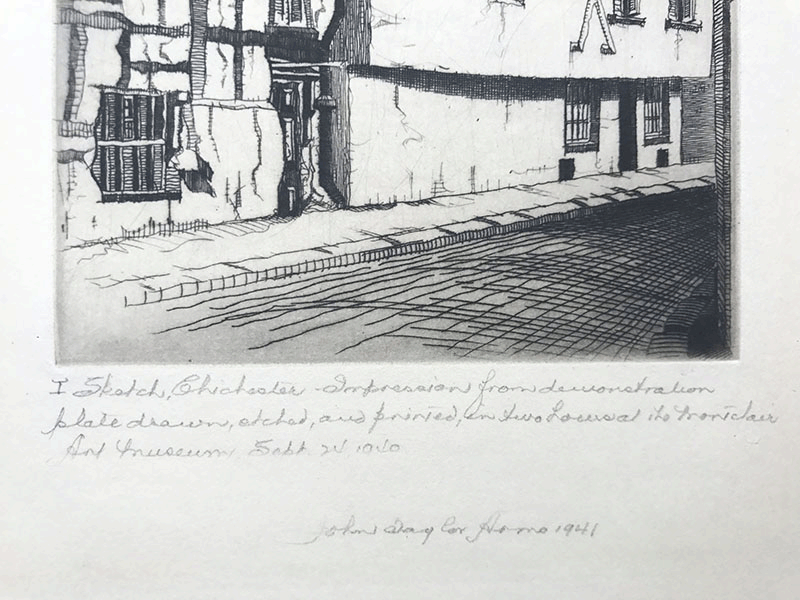 I Sketch, Chichester - Impression from demonstration
plate drawn, etched, and printed, in two hours at the Montclair
Art Museum, Sept. 24 1940
John Taylor Arms 1941